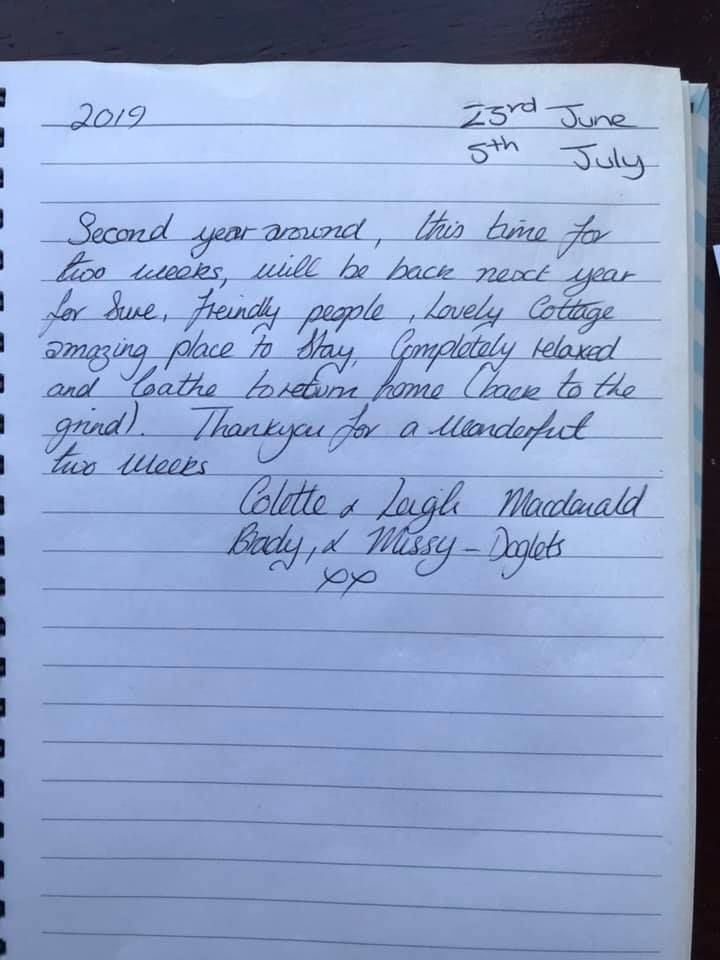 2019 23rd June
5th July
Second year around, this time for
two weeks, will be back next year
for Sure, freindly people, Lovely Cottage
amazing place to Stay, Completely relaxed
and loathe to return home (back to the
grind). Thankyou for a wonderful
two weeks
Colette & Leigh Macdonald
Brady, & Missy - Doglets
xx